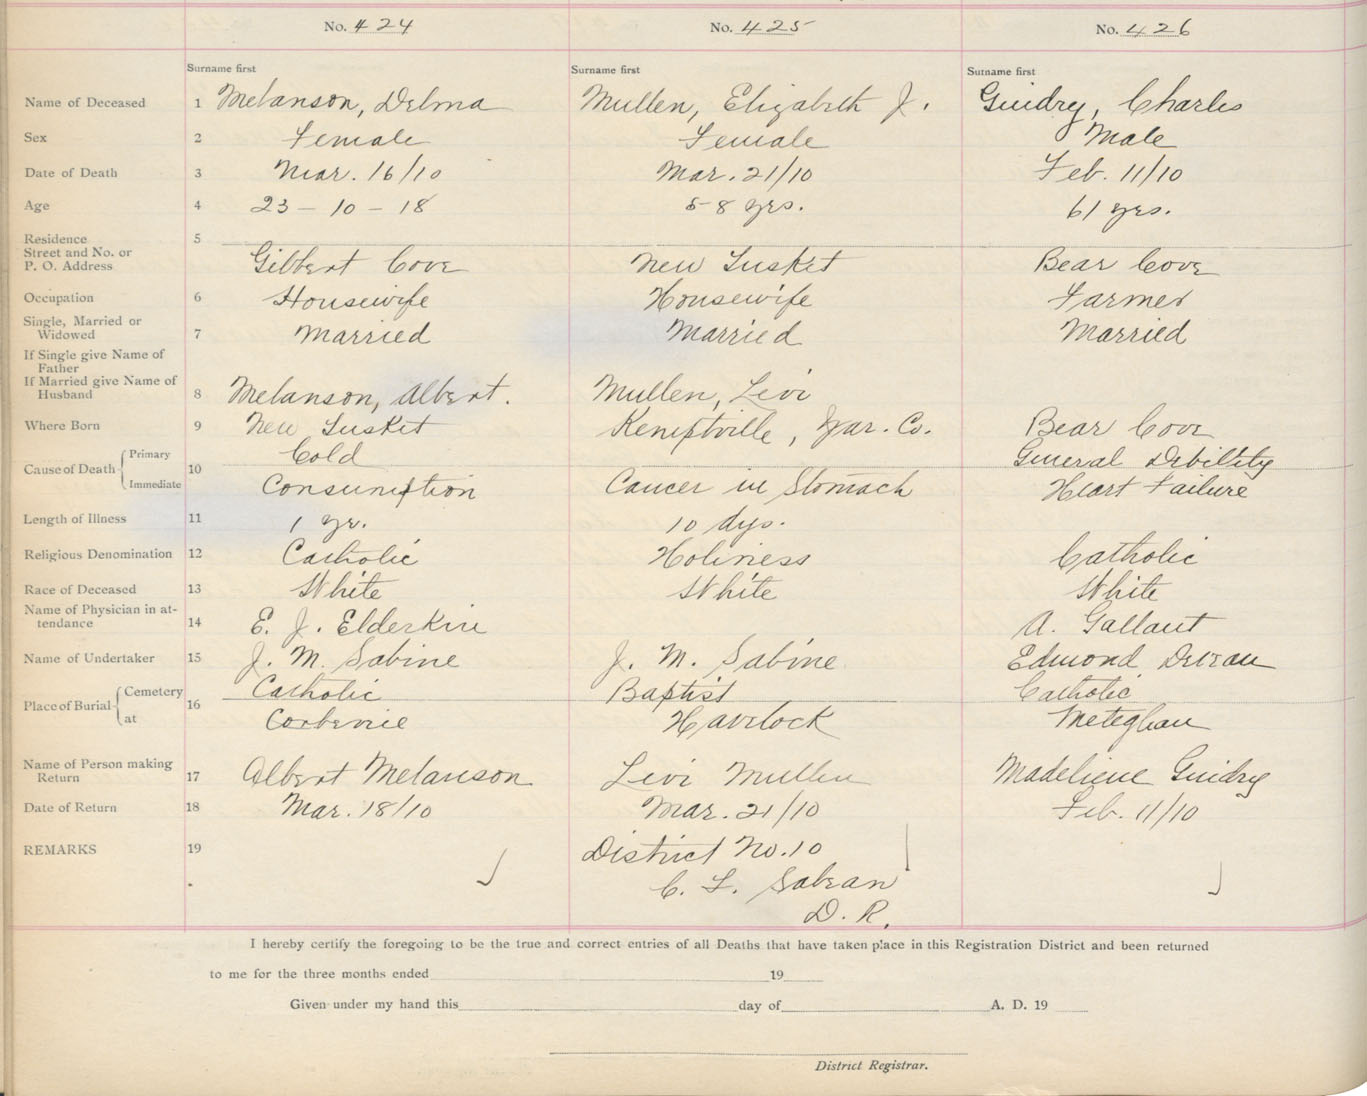 No. 424 No. 425 No. 426
Surname first Surname first Surname first
Name of Deceased 1 Melanson, Delma Mullen, Elizabeth J. Guidry, Charles
Sex 2 Female Female Male
Date of Death 3 Mar. 16/10 Mar. 21/10 Feb. 11/10
Age 4 23 - 10 - 18 58 yrs. 61 yrs.
Residence 5
Street and No. or
P. O. Address Gilbert Cove New Tusket Bear Cove
Occupation 6 Housewife Housewife Farmer
Single, Married or
Widowed 7 Married Married Married
If Single give Name of
Father
If Married give Name of
Husband 8 Melanson, Albert. Mullen, Levi
Where Born 9 New Tusket Kemptville, Yar. Co. Bear Cove
Cause of Death Primary 10 Cold General Debility
Immediate Consumption Cancer in Stomach Heart Failure
Length of Illness 11 1 yr. 10 dys.
Religious Denomination 12 Catholic Holiness Catholic
Race of Deceased 13 White White White
Name of Physician in at-
tendance 14 E. J. Elderkin A. Gallant
Name of Undertaker 15 J. M. Sabine J. M. Sabine Edmond Deveau
Place of Burial Cemetery 16 Catholic Baptist Catholic
at Corberrie Havelock Meteghan
Name of Person making
Return 17 Albert Melanson Levi Mullen Madeliene Guidry
Date of Return 18 Mar. 18/10 Mar. 21/10 Feb. 11/10
REMARKS 19 District No. 10
C. L. Sabean
D. R.
I hereby certify the foregoing to be the true and correct entries of all Deaths that have taken place in this Registration District and been returned
to me for the three months ended 19
Given under my hand this day of A. D. 19
District Registrar.